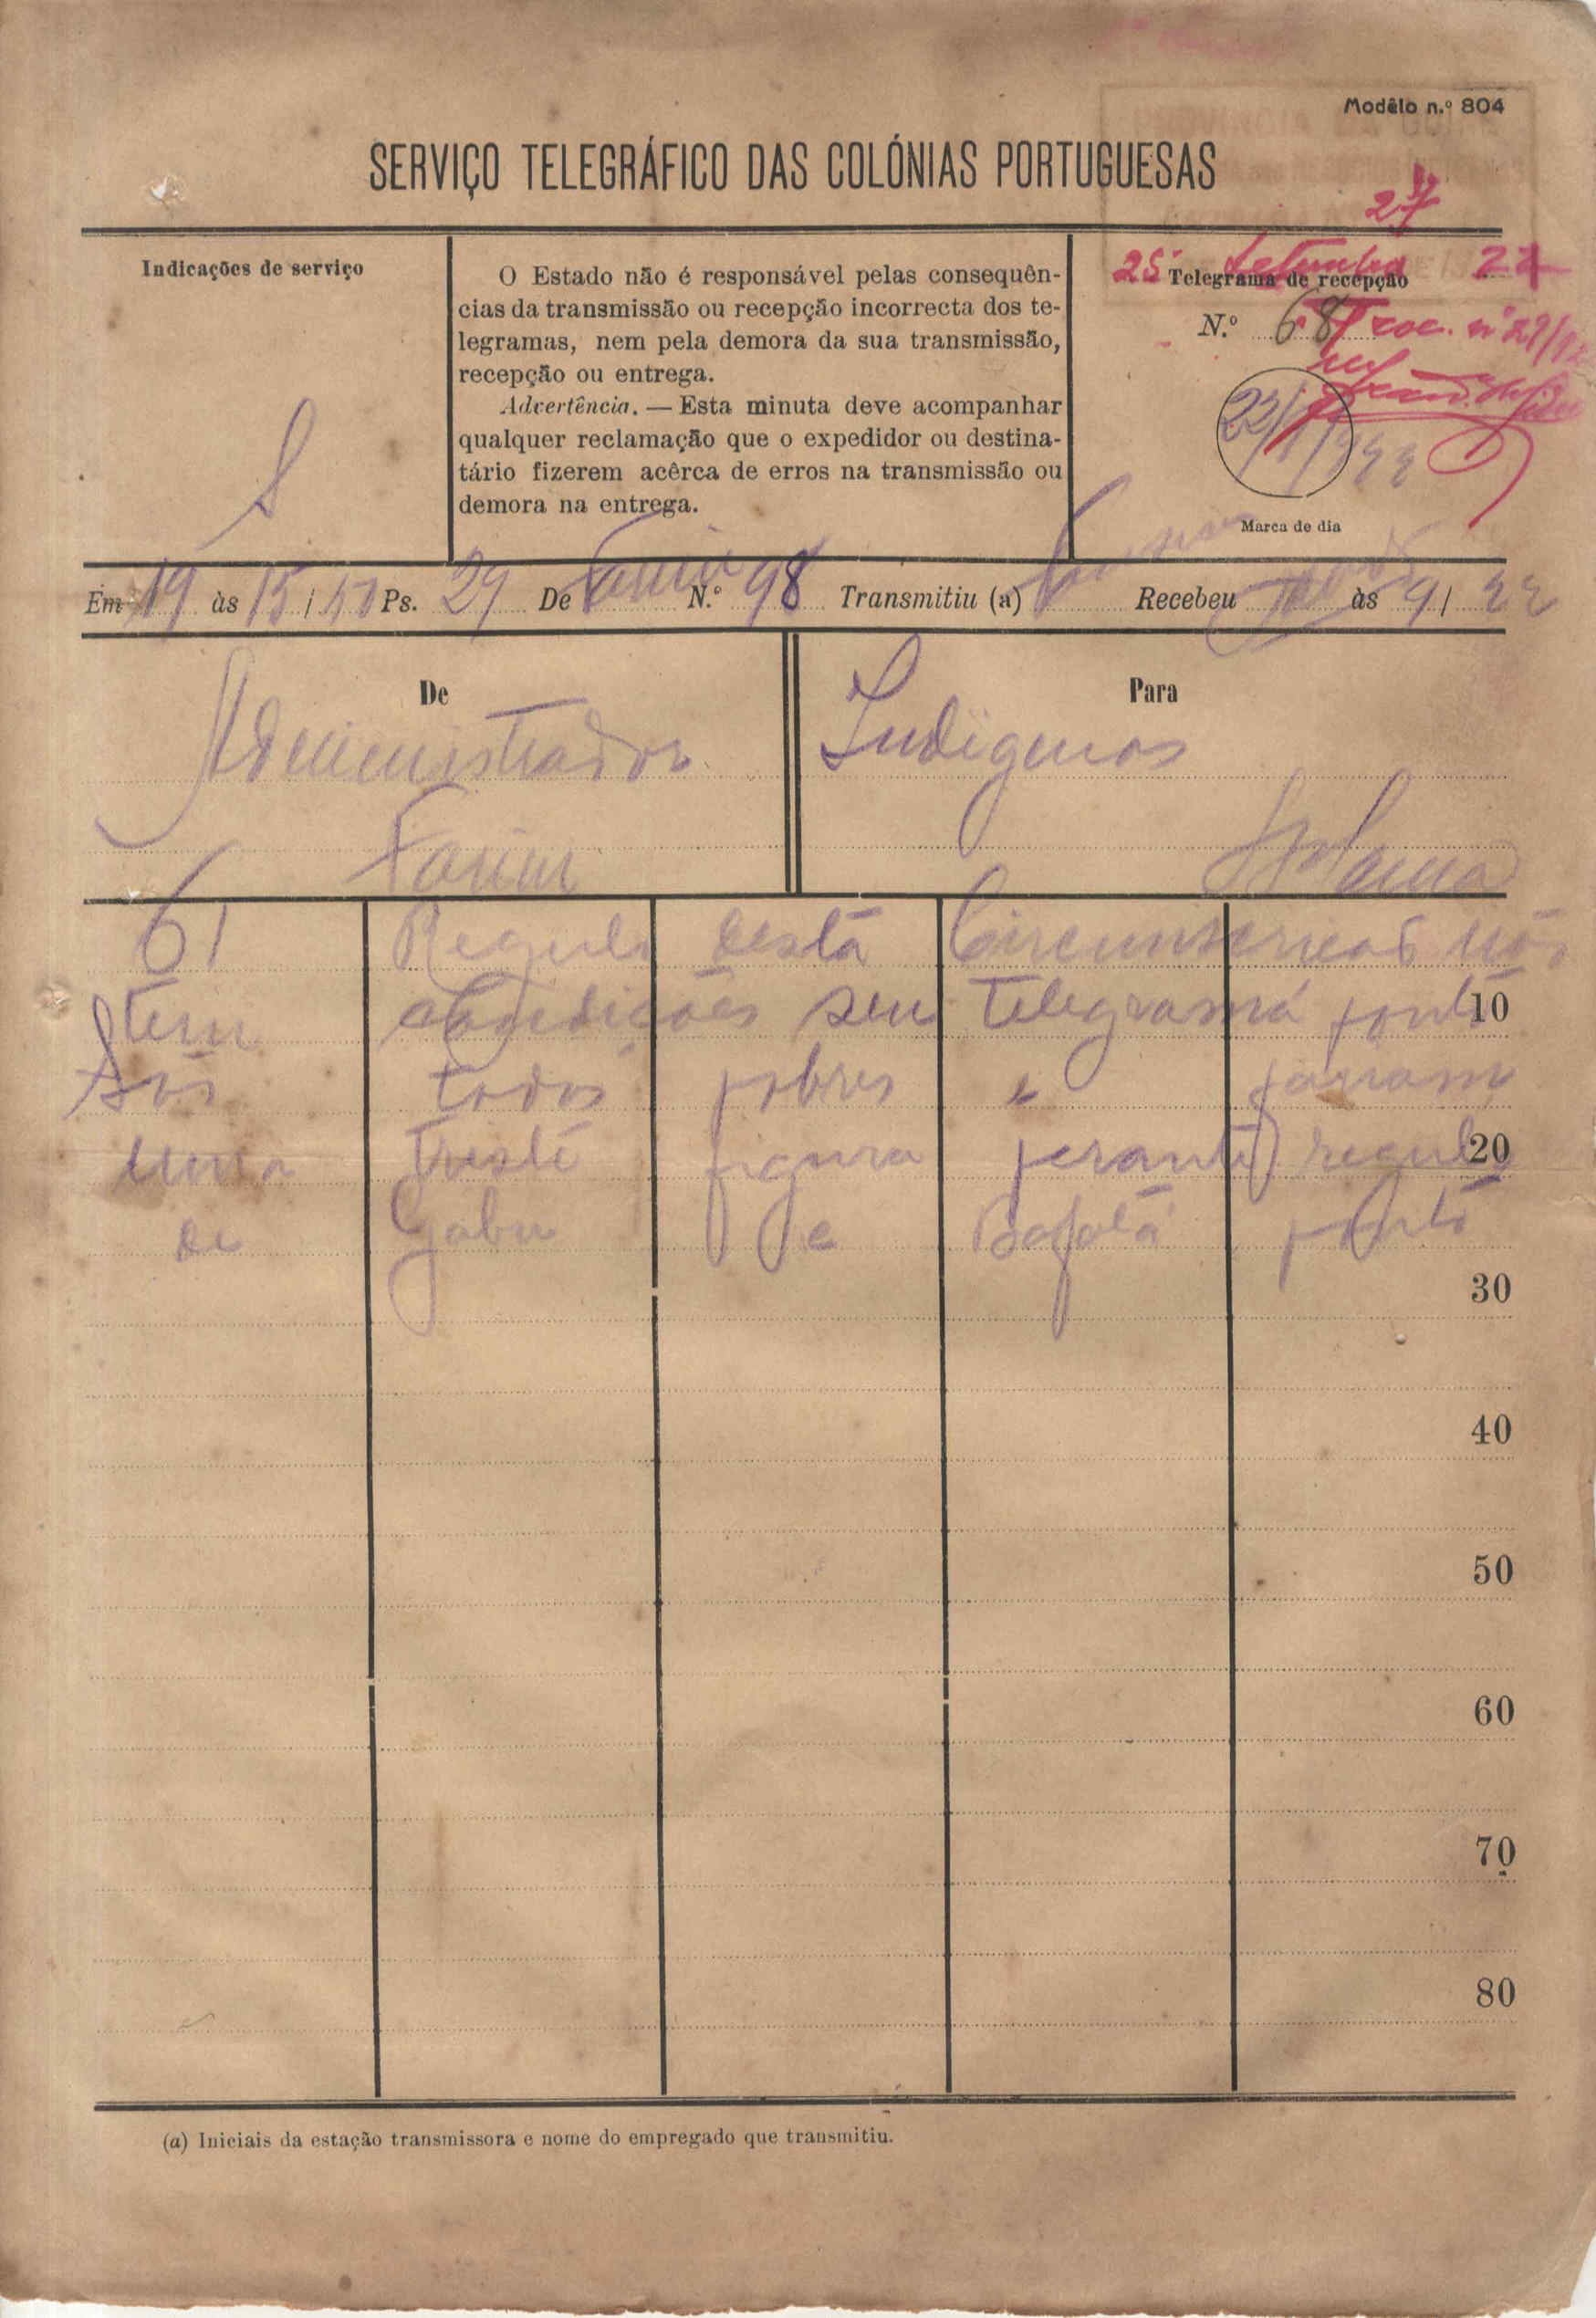 Modêlo n.º 804
SERVIÇO TELEGRÁFICO DAS COLÓNIAS PORTUGUESAS
27
Indicações de serviço
S
O Estado não é responsável pelas consequên-
cias da transmissão ou recepção incorrecta dos te-
legramas, nem pela demora da sua transmissão,
recepção ou entrega.
Advertência. — Esta minuta deve acompanhar
qualquer reclamação que o expedidor ou destina-
tário fizerem acêrca de erros na transmissão ou
demora na entrega.
25 Setembro 22
Telegrama de recepção
N.º 68
Marca de dia
Em 19 às 15 / 50 Ps. 29 De Farim N.º 98 Transmitiu (a) Recebeu às 9 / 22
De
Administrador
Farim
Para
Indigenas
Bolama
61 Regulo desta Circunscricao não
tem condições seu telegrama ponto 10
São todos pobres e fariam
uma triste figura perante regulo 20
de Gabu e Bafatá ponto
30
40
50
60
70
80
(a) Iniciais da estação transmissora e nome do empregado que transmitiu.